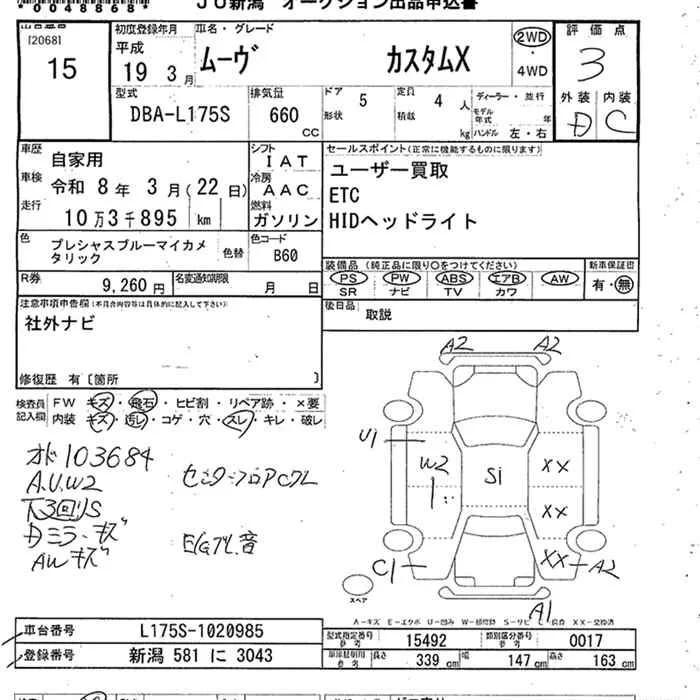 *00048868*
JU新潟 オークション出品申込書
[2068]
15
初度登録年月
平成
19 3月
車名・グレード
ムーヴ カスタムX
2WD
4WD
評価点
3
外装 内装
D C
型式
DBA-L175S
排気量
660
CC
ドア 5
形状
定員 4 人
積載 kg
ディーラー・並行
モデル年式 年
ハンドル 左・右
車歴 自家用
車検 令和 8年 3月(22日)
走行 10万3千895 km
シフト
IAT
冷房
AAC
燃料
ガソリン
セールスポイント(正常に機能するものに限ります)
ユーザー買取
ETC
HIDヘッドライト
色 プレシャスブルーマイカメタリック
色替
色コード
B60
装備品(純正品に限り○をつけてください)
PS PW ABS エアB AW
SR ナビ TV カワ
新車保証書
有・無
R券
9,260円
名変通知期限
月 日
後日品 取説
注意事項申告欄(不具合内容等は具体的に記入して下さい)
社外ナビ
修復歴 有〔箇所 〕
検査員記入欄
FW キズ・飛石・ヒビ割・リペア跡・×要
内装 キズ・汚レ・コゲ・穴・スレ・キレ・破レ
オド103684
A.U.W2
下3回リS
Dミラーキズ
AWキズ
センターフロアCクレ
E/G 音
A2 A2
U1
W2
Si
XX
XX
C1
XX A2
A1
スペア
A-キズ E-エクボ U-凹み
XX-交換済
車台番号 L175S-1020985
登録番号 新潟 581 に 3043
型式指定番号 参考 15492
類別区分番号 参考 0017
参考 長さ 339 cm 幅 147 cm 高さ 163 cm